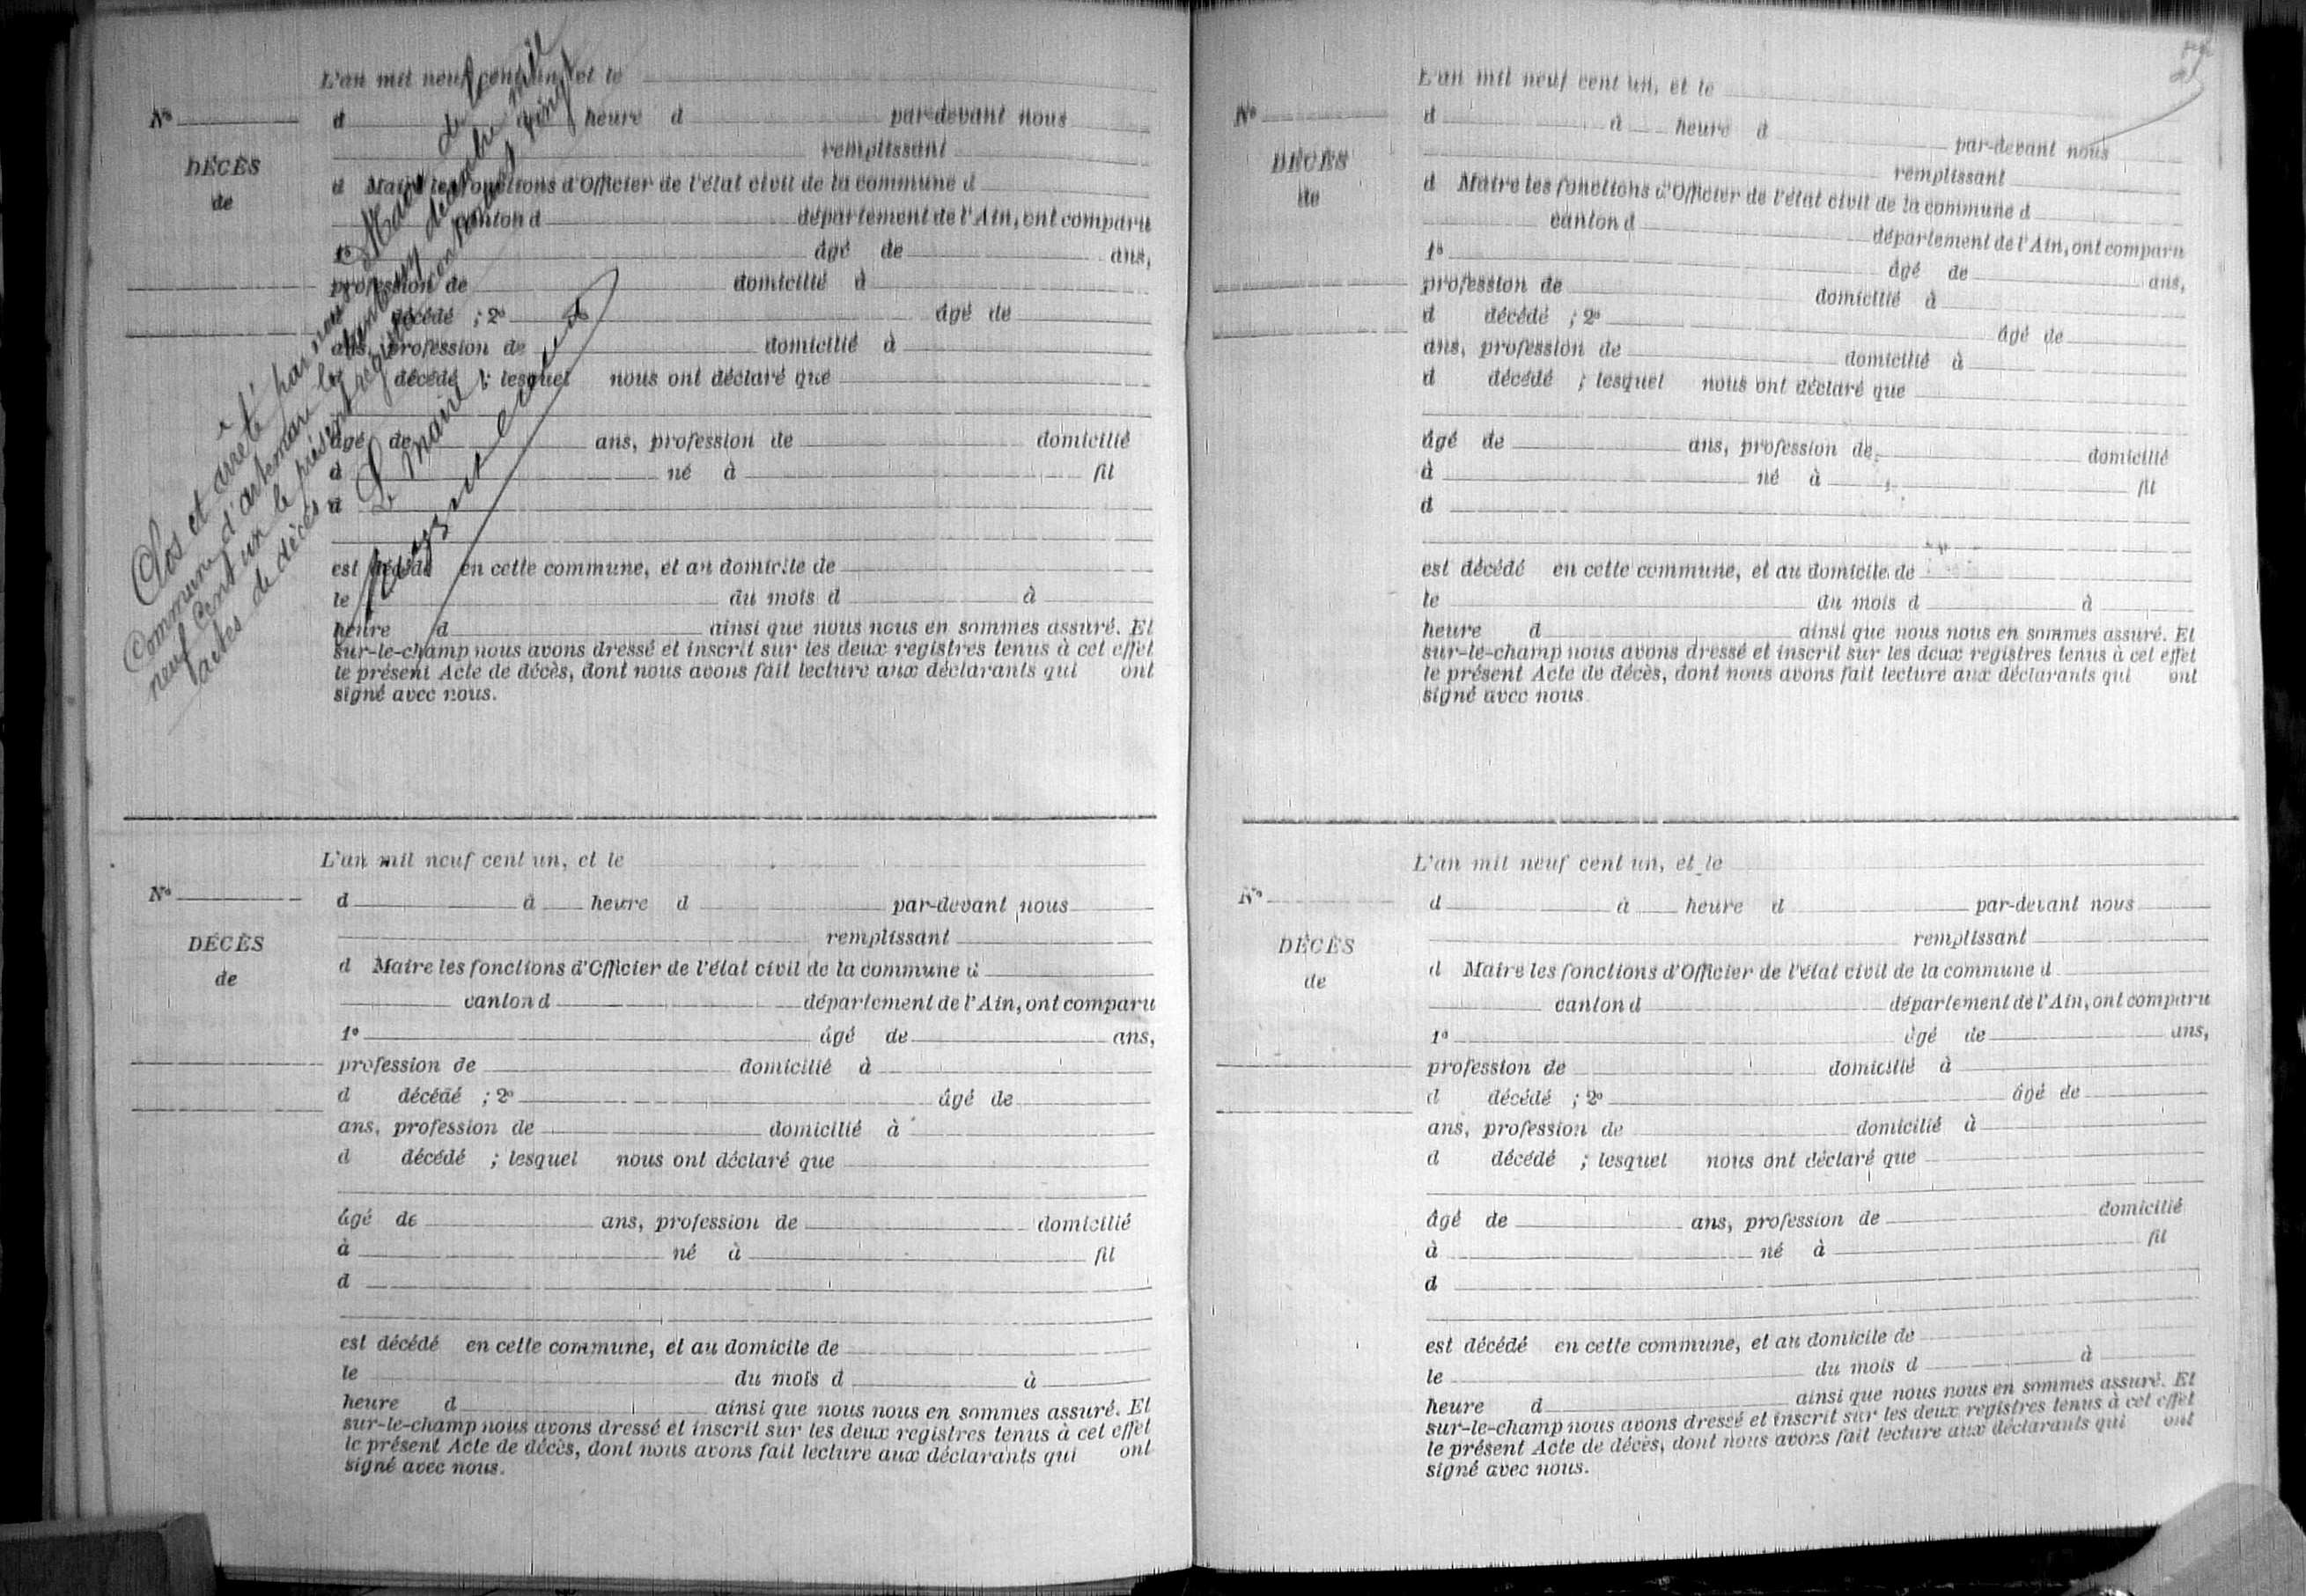 L'an mil neuf cent un, et le
N°
d à heure d par-devant nous
remplissant
DÉCÈS
d Maire les fonctions d'Officier de l'état civil de la commune d
de
canton d département de l'Ain, ont comparu
1° âgé de ans,
profession de domicilié à
d décédé ; 2° âgé de
ans, profession de domicilié à
d décédé ; lesquel nous ont déclaré que
âgé de ans, profession de domicilié
à né à fil
d
est décédé en cette commune, et au domicile de
le du mois d à
heure d ainsi que nous nous en sommes assuré. Et
sur-le-champ nous avons dressé et inscrit sur les deux registres tenus à cet effet
le présent Acte de décès, dont nous avons fait lecture aux déclarants qui ont
signé avec nous.
Clos et arrêté par nous Maire de la
Commune d'artemare le trente un décembre mil
neuf cent un le présent registre contenant vingt
actes de décès
Le Maire
L'an mil neuf cent un, et le
N°
d à heure d par-devant nous
remplissant
DÉCÈS
d Maire les fonctions d'Officier de l'état civil de la commune d
de
canton d département de l'Ain, ont comparu
1° âgé de ans,
profession de domicilié à
d décédé ; 2° âgé de
ans, profession de domicilié à
d décédé ; lesquel nous ont déclaré que
âgé de ans, profession de domicilié
à né à fil
d
est décédé en cette commune, et au domicile de
le du mois d à
heure d ainsi que nous nous en sommes assuré. Et
sur-le-champ nous avons dressé et inscrit sur les deux registres tenus à cet effet
le présent Acte de décès, dont nous avons fait lecture aux déclarants qui ont
signé avec nous.
L'an mil neuf cent un, et le
N°
d à heure d par-devant nous
remplissant
DÉCÈS
d Maire les fonctions d'Officier de l'état civil de la commune d
de
canton d département de l'Ain, ont comparu
1° âgé de ans,
profession de domicilié à
d décédé ; 2° âgé de
ans, profession de domicilié à
d décédé ; lesquel nous ont déclaré que
âgé de ans, profession de domicilié
à né à fil
d
est décédé en cette commune, et au domicile de
le du mois d à
heure d ainsi que nous nous en sommes assuré. Et
sur-le-champ nous avons dressé et inscrit sur les deux registres tenus à cet effet
le présent Acte de décès, dont nous avons fait lecture aux déclarants qui ont
signé avec nous
L'an mil neuf cent un, et le
N°
d à heure d par-devant nous
remplissant
DÉCÈS
d Maire les fonctions d'Officier de l'état civil de la commune d
de
canton d département de l'Ain, ont comparu
1° âgé de ans,
profession de domicilié à
d décédé ; 2° âgé de
ans, profession de domicilié à
d décédé ; lesquel nous ont déclaré que
âgé de ans, profession de domicilié
à né à fil
d
est décédé en cette commune, et au domicile de
le du mois d à
heure d ainsi que nous nous en sommes assuré. Et
sur-le-champ nous avons dressé et inscrit sur les deux registres tenus à cet effet
le présent Acte de décès, dont nous avons fait lecture aux déclarants qui ont
signé avec nous.